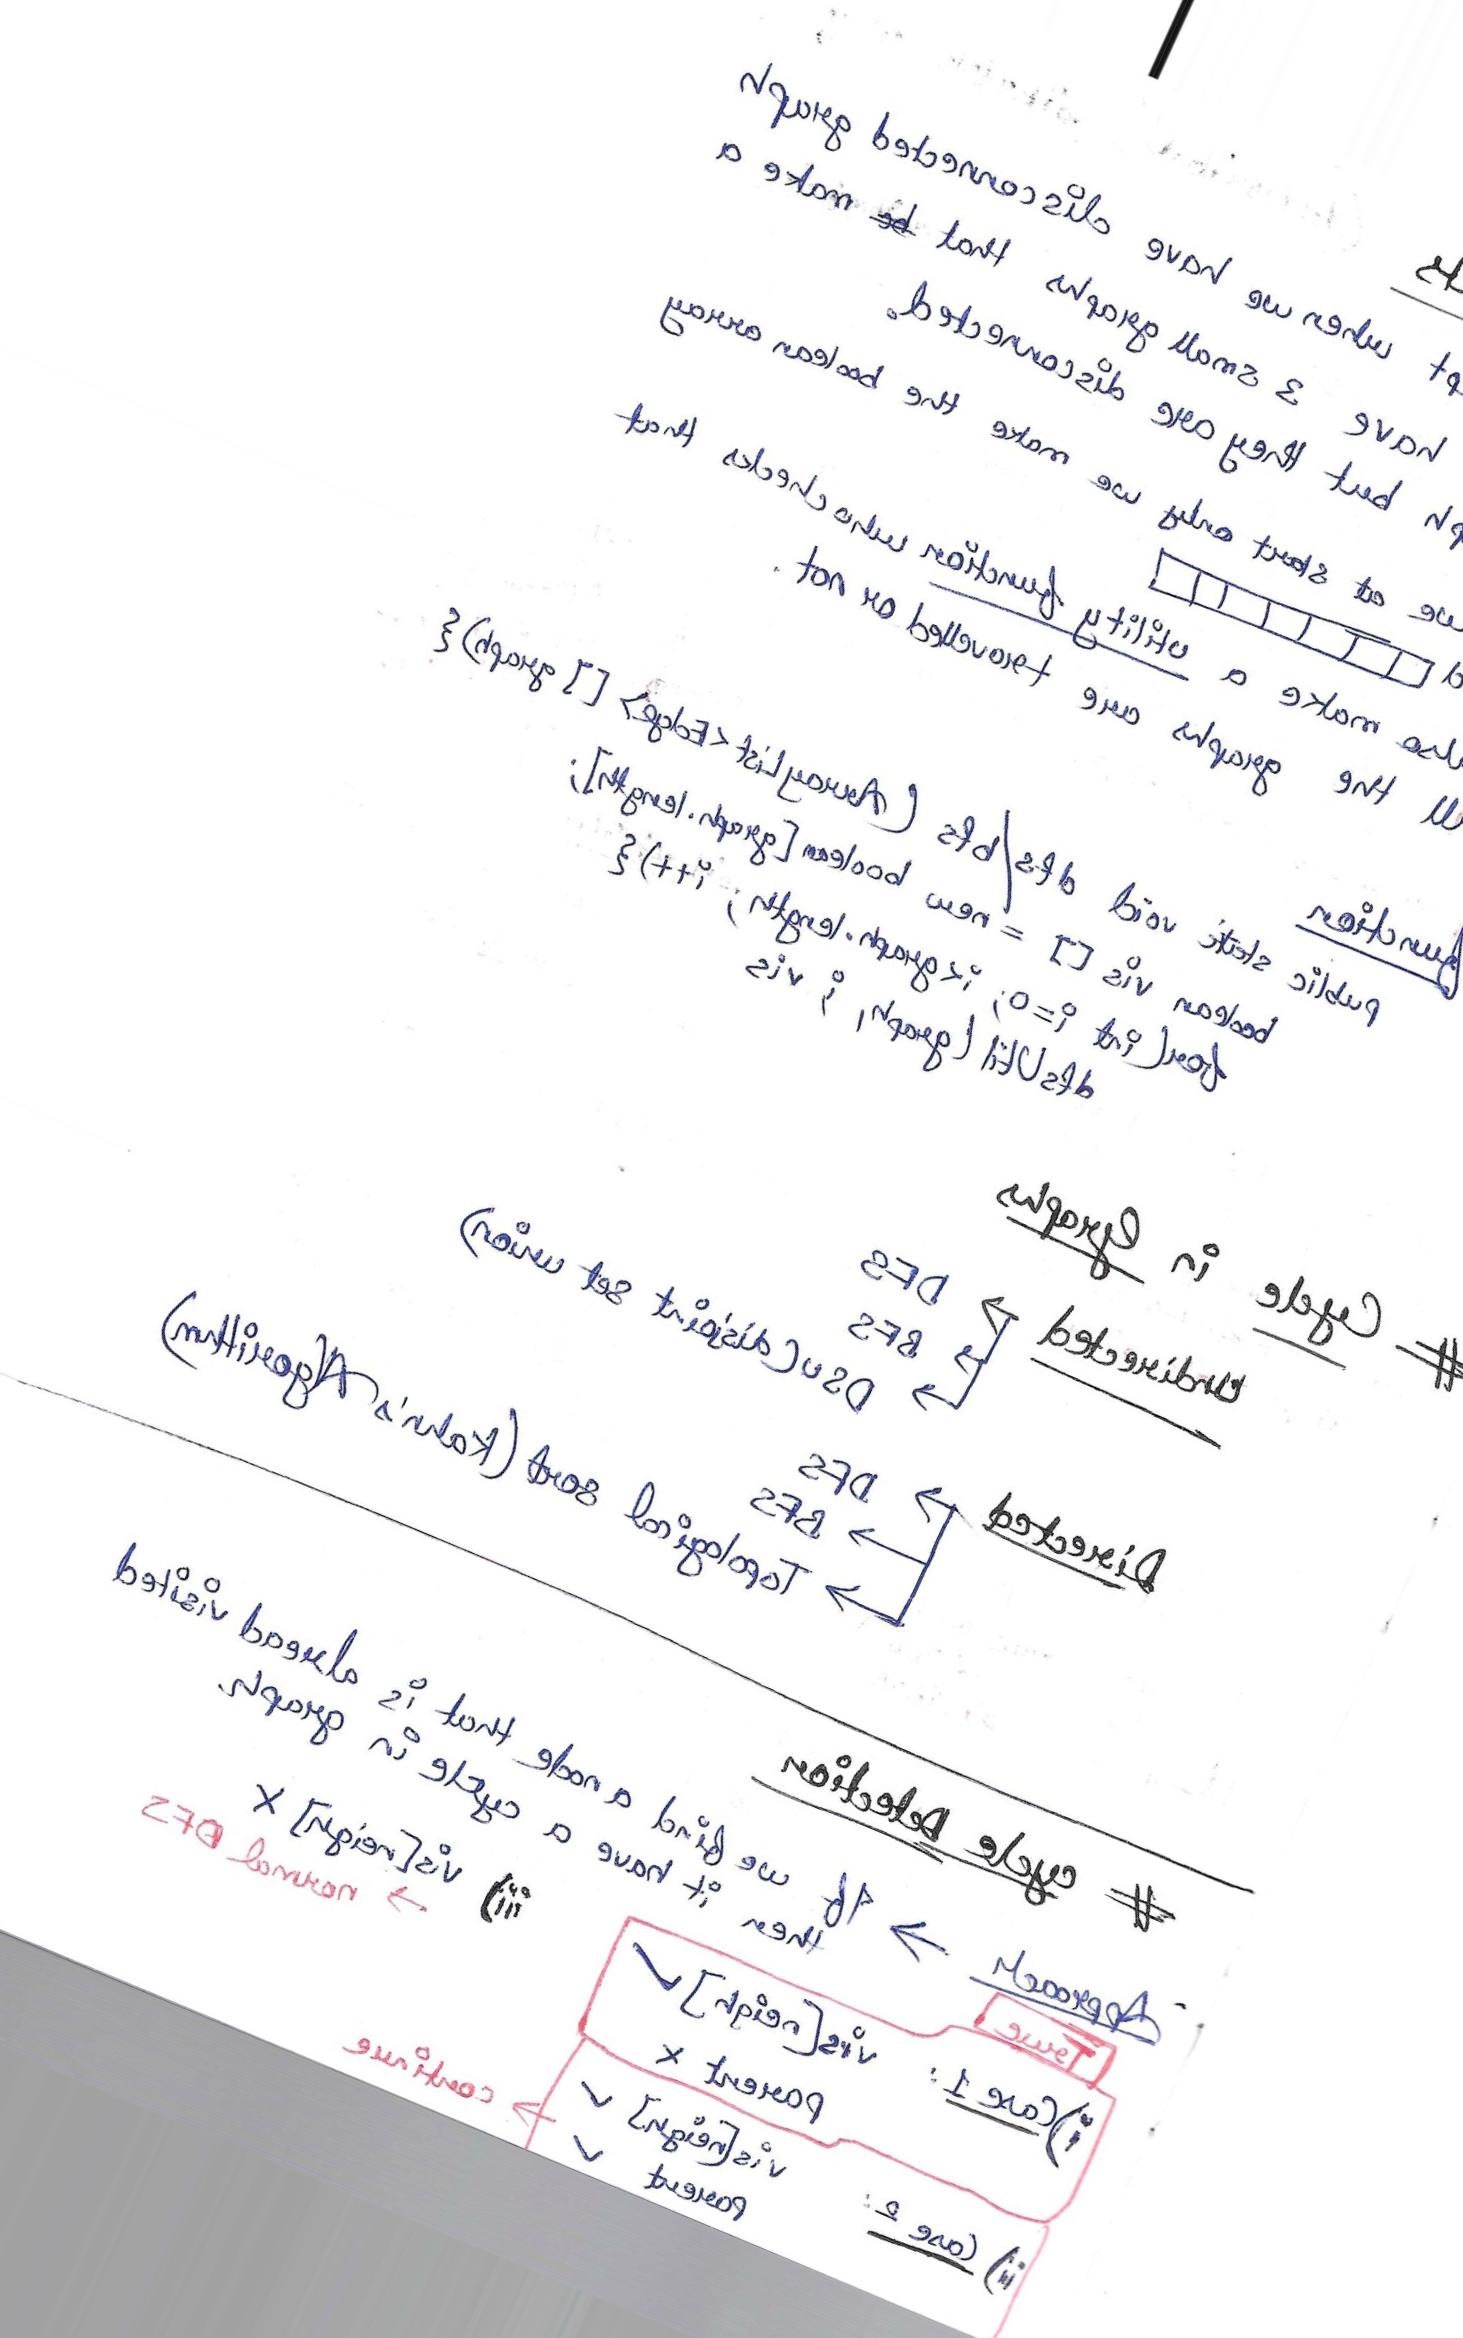 ts
pt when we have disconnected graph
have 3 small graphs that make a
ph but they are disconnected.
we at start only we make the boolean array
also make a utility function who checks that
ll the graphs are travelled or not.
function
public static void dfs/bfs (ArrayList<Edge> [] graph){
boolean vis [] = new boolean [graph.length];
for(int i=0; i<graph.length; i++){
dfsUtil (graph, i, vis
# Cycle in Graphs
Undirected → DFS
→ BFS
→ DSU (disjoint set union)
Directed → DFS
→ BFS
→ Topological sort (Kahn's Algorithm)
# cycle Detection
Approach → If we find a node that is alread visited
then it have a cycle in graph.
True
i) Case 1: vis[neigh] ✓
parent x
ii) Case 2: vis[neigh] ✓
parent ✓
→ continue
iii) vis[neigh] x
→ normal DFS